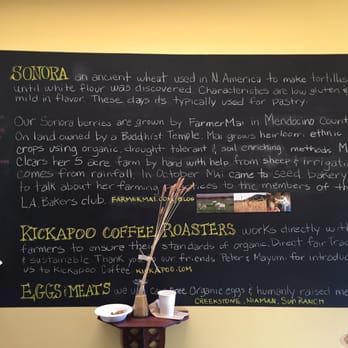 SONORA an ancient wheat used in N. America to make tortillas
until white flour was discovered. Characteristics are low gluten &
mild in flavor. These days its typically used for pastry.
Our Sonora berries are grown by Farmer Mai in Mendocino Count
On land owned by a Buddhist Temple. Mai grows heirloom ethnic
crops using organic, drought tolerant & soil enriching methods. M
Clears her 5 acre farm by hand with help from sheep & irrigat
comes from rainfall. In October Mai came to seed bakery
to talk about her farming to the members of th
L.A. Bakers club. FARMERMAI.COM/BLOG
KICKAPOO COFFEE ROASTERS works directly wit
farmers to ensure their standards of organic. Direct fair Trad
& sustainable Thank you to our friends Peter & Mayumi for introduc
us to Kickapoo Coffee KICKAPOO.COM
EGGS & MEATS we use Organic eggs & humanely raised m
CREEKSTONE, NIAMAN, SUN RANCH